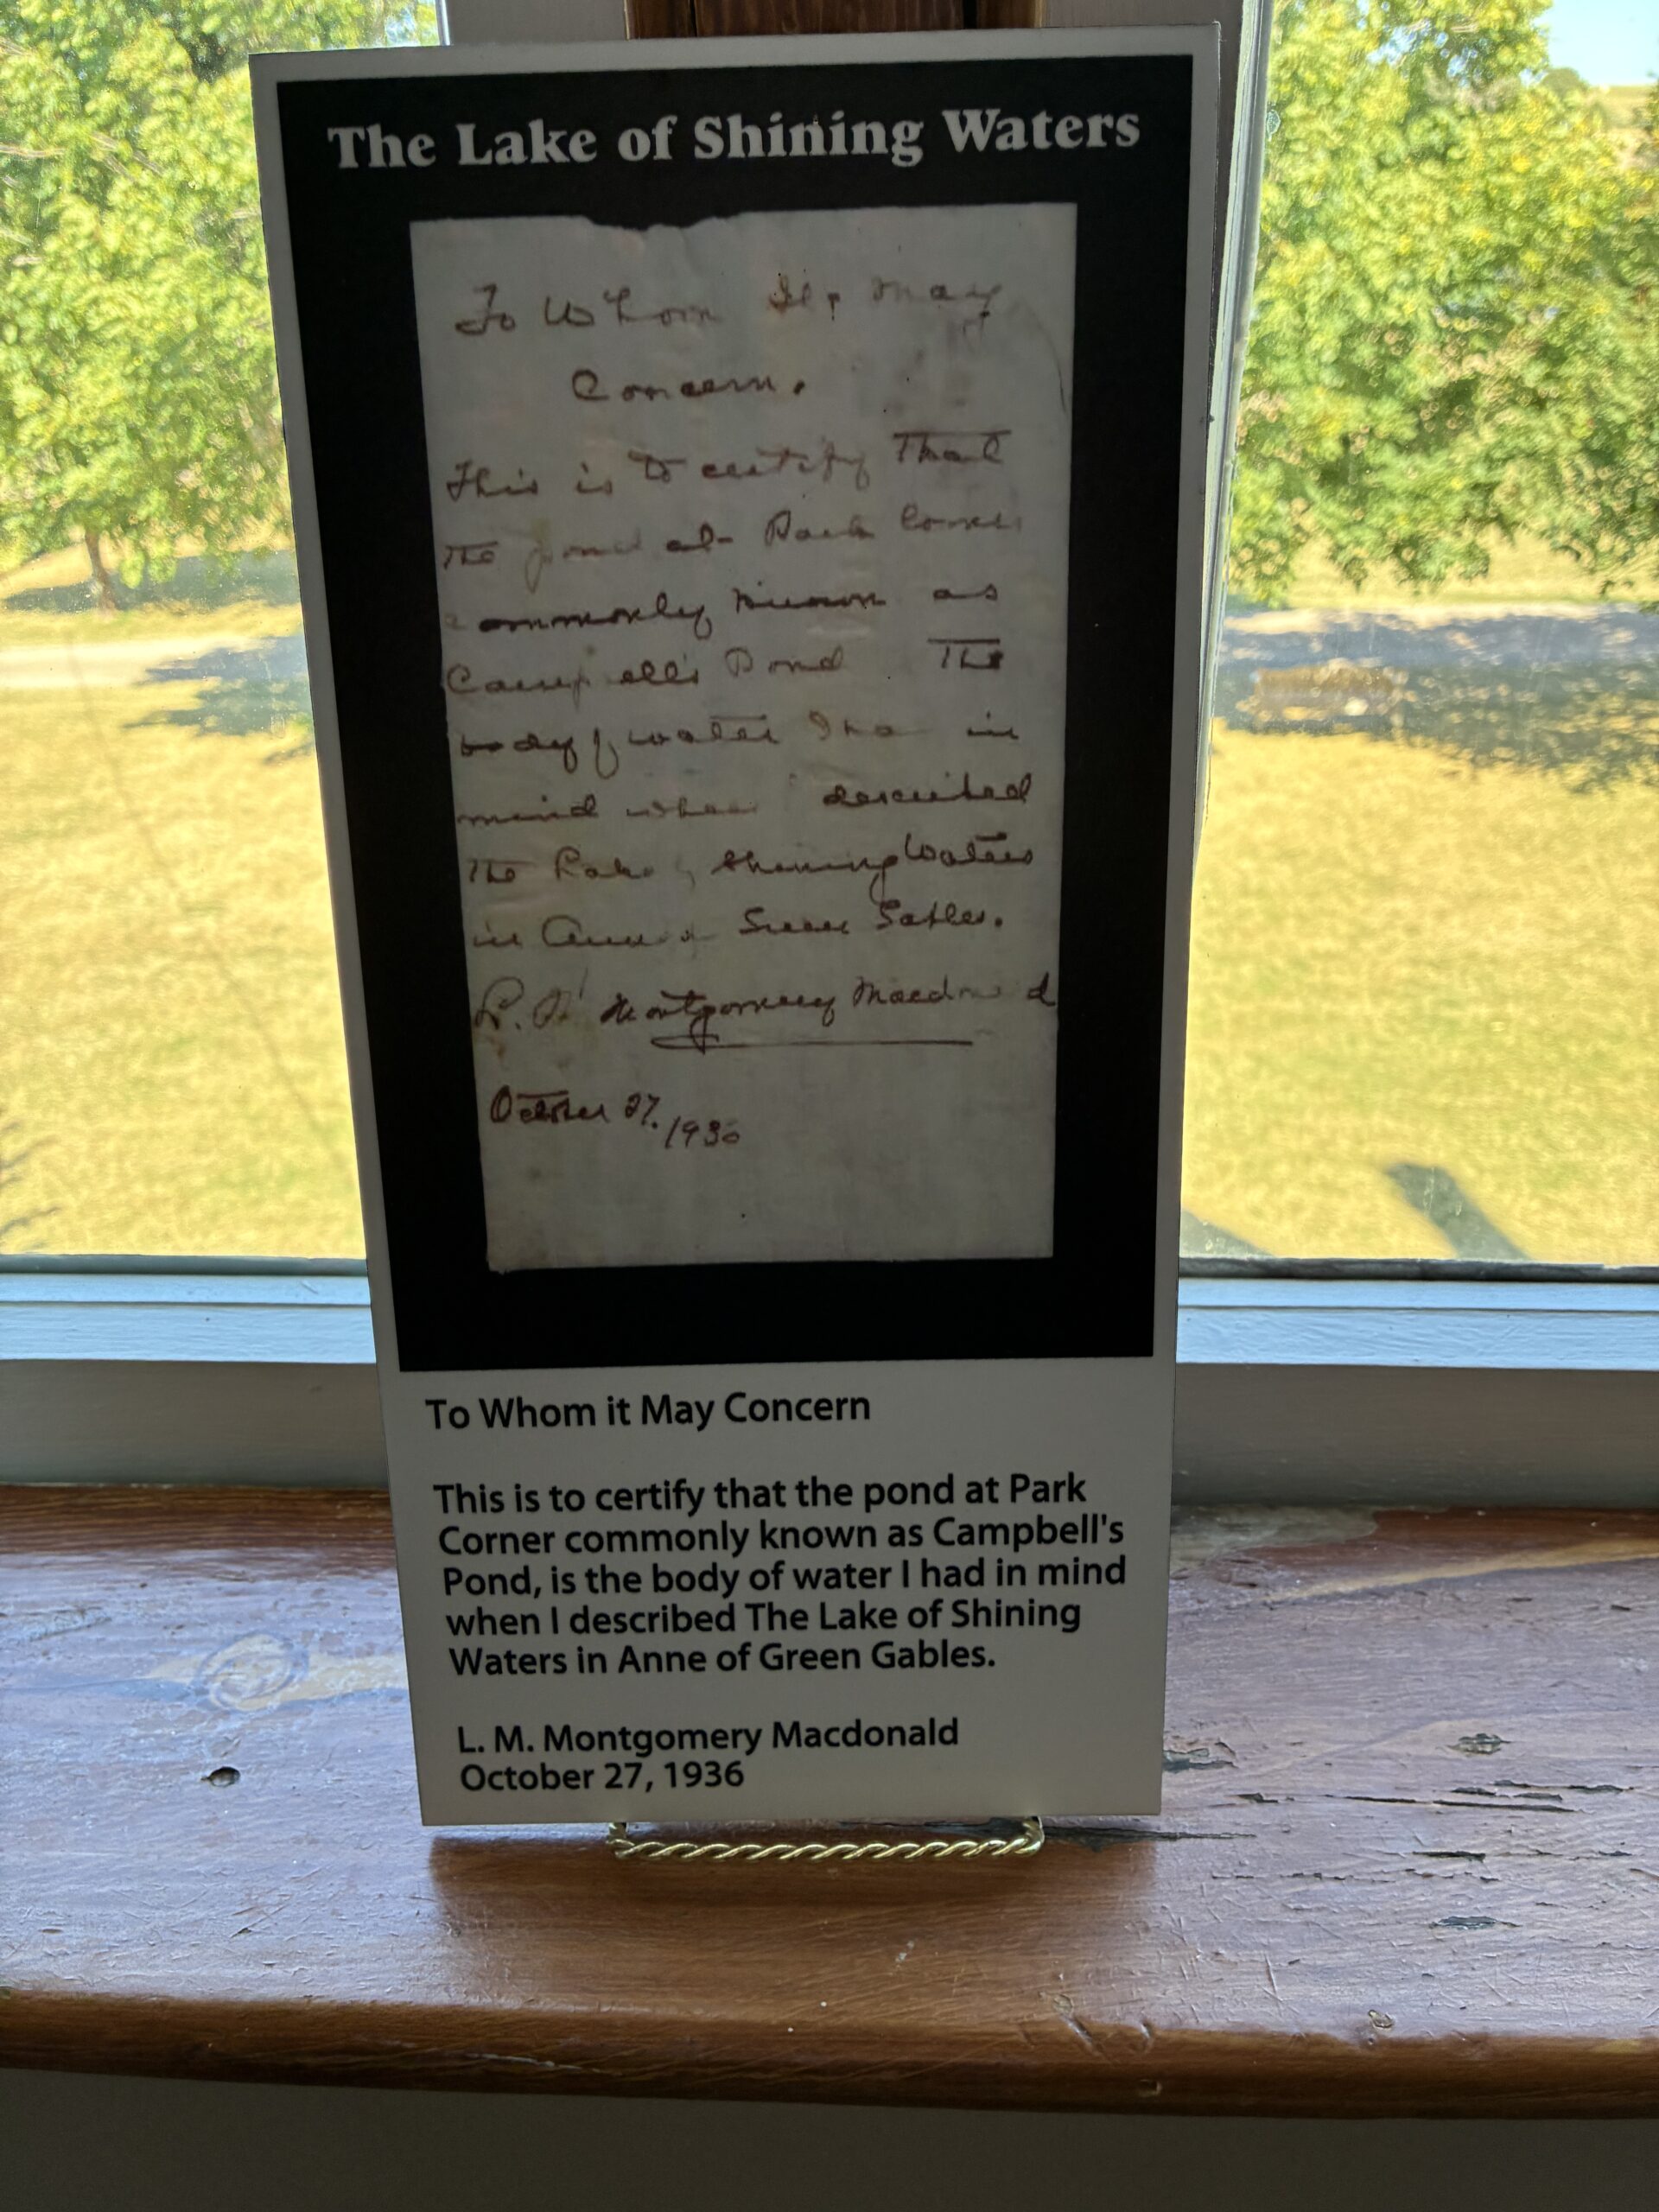 The Lake of Shining Waters
To Whom It May
Concern.
This is to certify that
the pond at Park Corner
commonly known as
Campbell's Pond the
body of water I had in
mind when described
the Lake of Shining Waters
in Anne of Green Gables.
L. M. Montgomery Macdonald
October 27, 1936
To Whom it May Concern
This is to certify that the pond at Park
Corner commonly known as Campbell's
Pond, is the body of water I had in mind
when I described The Lake of Shining
Waters in Anne of Green Gables.
L. M. Montgomery Macdonald
October 27, 1936